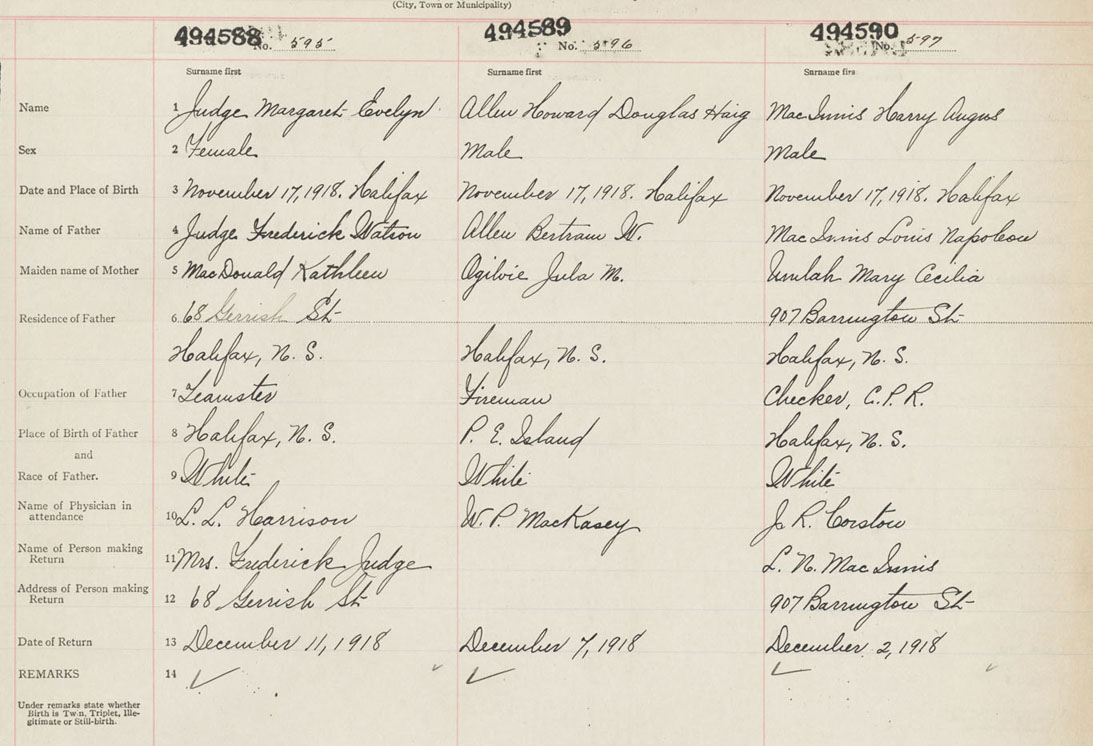 (City, Town or Municipality)
494588 No. 595 494589 No. 596 494590 No. 597
Surname first Surname first Surname firs
Name 1 Judge Margaret Evelyn Allen Howard Douglas Haig MacInnis Harry Angus
Sex 2 Female Male Male
Date and Place of Birth 3 November 17, 1918. Halifax November 17, 1918. Halifax November 17, 1918. Halifax
Name of Father 4 Judge Frederick Watson Allen Bertram W. MacInnis Louis Napoleon
Maiden name of Mother 5 MacDonald Kathleen Ogilvie Jula M. Umlah Mary Cecilia
Residence of Father 6 68 Gerrish St 907 Barrington St
Halifax, N. S. Halifax, N. S. Halifax, N. S.
Occupation of Father 7 Teamster Fireman Checker, C.P.R.
Place of Birth of Father 8 Halifax, N. S. P. E. Island Halifax, N. S.
and
Race of Father. 9 White White White
Name of Physician in attendance 10 L. L. Harrison W. P. MacKasey J R. Corston
Name of Person making Return 11 Mrs. Frederick Judge L. N. MacInnis
Address of Person making Return 12 68 Gerrish St 907 Barrington St
Date of Return 13 December 11, 1918 December 7, 1918 December 2, 1918
REMARKS 14 ✓ ✓ ✓
Under remarks state whether
Birth is Twin, Triplet, Ille-
gitimate or Still-birth.